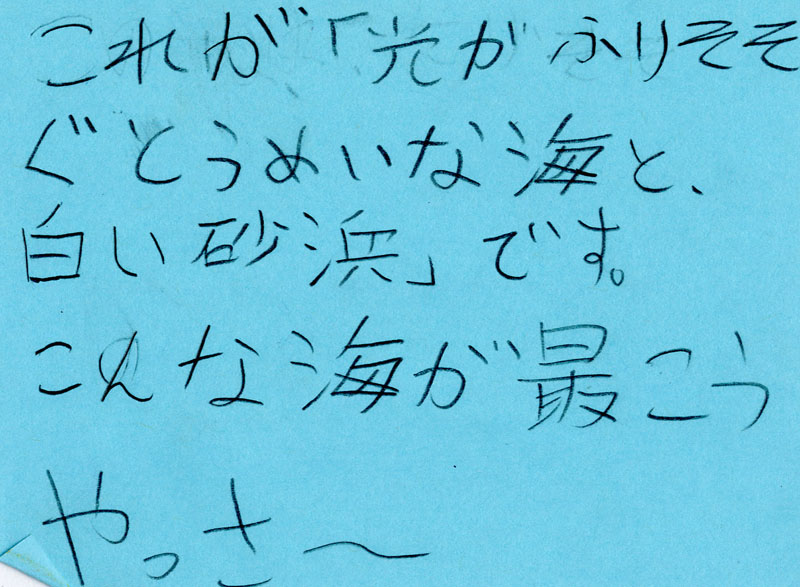 これが「光がふりそそ
ぐとうめいな海と、
白い砂浜」です。
こんな海が最こう
やっさ〜